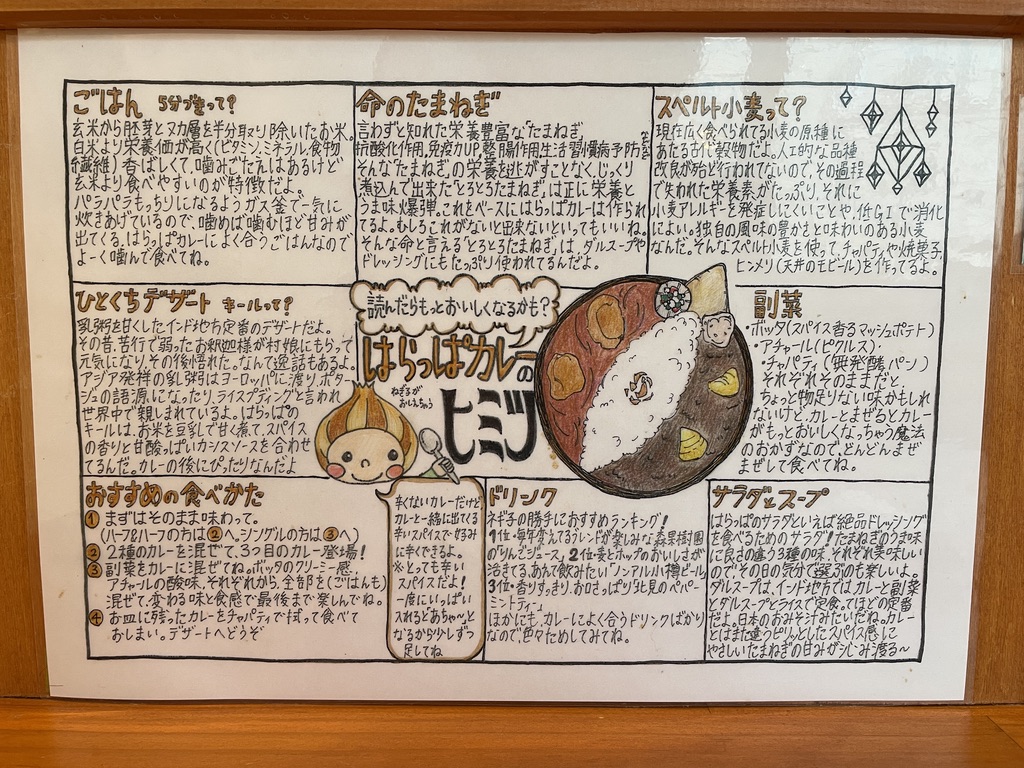 ごはん 5分づきって?
玄米から胚芽とヌカ層を半分取り除いたお米。
白米より栄養価が高く(ビタミン、ミネラル、食物
繊維) 香ばしくて、噛みごたえはあるけど
玄米より食べやすいのが特徴だよ。
パラパラもっちりになるようガス釜で一気に
炊きあげているので、噛めば噛むほど甘みが
出てくる、はらっぱカレーによく合うごはんなので
よーく噛んで食べてね。
命のたまねぎ
言わずと知れた栄養豊富な"たまねぎ。
抗酸化作用、免疫力UP、整腸作用、生活習慣病予防などなど
そんな"たまねぎ"の栄養を逃がすことなく、じっくり
煮込んで出来た"とろとろたまねぎ"は、正に栄養と
うま味爆弾。これをベースにはらっぱカレーは作られ
てるよ。むしろこれがないと出来ないといってもいいね。
そんな命と言える"とろとろたまねぎ"は、ダルスープや
ドレッシングにもたっぷり使われてるんだよ。
スペルト小麦って?
現在広く食べられてる小麦の原種に
あたる古代穀物だよ。人工的な品種
改良が殆ど行われてないので、その過程
で失われた栄養素がたっぷり、それに
小麦アレルギーを発症しにくいことや、低GIで消化
によい。独自の風味の豊かさと味わいのある小麦
なんだ。そんなスペルト小麦を使って、チャパティや焼菓子、
ヒンメリ(天井のモビール)を作ってるよ。
ひとくちデザート キールって?
乳粥を甘くしたインド地方定番のデザートだよ。
その昔、苦行で弱ったお釈迦様が村娘にもらって
元気になりその後悟れた。なんて逸話もあるよ。
アジア発祥の乳粥はヨーロッパに渡り、ポター
ジュの語源になったり、ライスプディングと言われ
世界中で親しまれているよ。はらっぱの
キールは、お米を豆乳で甘く煮て、スパイス
の香りと甘酸っぱいカシスソースを合わせ
てるんだ。カレーの後にぴったりなんだよ
読んだらもっとおいしくなるかも?
はらっぱカレーの
ヒミツ
ねぎ子が
おしえちゃう
副菜
・ボッタ(スパイス香るマッシュポテト)
・アチャール(ピクルス)・
・チャパティ(無発酵パン)
それぞれそのままだと、
ちょっと物足りない味かもしれ
ないけど、カレーとまぜるとカレー
がもっとおいしくなっちゃう魔法
のおかずなので、どんどんまぜ
まぜして食べてね。
おすすめの食べかた
① まずはそのまま味わって。
(ハーフ&ハーフの方は②へ。シングルの方は③へ)
② 2種のカレーを混ぜて、3つ目のカレー登場!
③ 副菜をカレーに混ぜてね。ボッタのクリーミー感、
アチャールの酸味、それぞれから、全部を(ごはんも)
混ぜて、変わる味と食感で最後まで楽しんでね。
④ お皿に残ったカレーをチャパティで拭って食べて
おしまい。デザートへどうぞ
辛くないカレーだけど
カレーと一緒に出てくる
辛いスパイスで好みに
辛くできるよ。
※とっても辛い
スパイスだよ!
一度にいっぱい
入れるとあちゃ〜と
なるから少しずつ
足してね
ドリンク
ネギ子の勝手におすすめランキング!
1位・毎年変えてるブレンドが楽しみな森果樹園
の「りんごジュース」 2位・麦とホップのおいしさが
活きてる、あんで飲みたい「ノンアル小樽ビール」
3位・香りすっきり、おさっぱり「北見のペパー
ミントティー」
ほかにも、カレーによく合うドリンクばかり
なので、色々ためしてみてね。
サラダとスープ
はらっぱのサラダといえば絶品ドレッシング
を食べるためのサラダ!たまねぎのうま味
に良さの違う3種の味、それぞれ美味しい
のでその日の気分で選ぶのも楽しいよ。
ダルスープは、インド地方ではカレーと副菜
とダルスープとライスで定食。てほどの定番
だよ。日本のおみそ汁みたいだね。カレー
とはまた違うピリッとしたスパイス感に
やさしいたまねぎの甘みがジじみ渡る〜